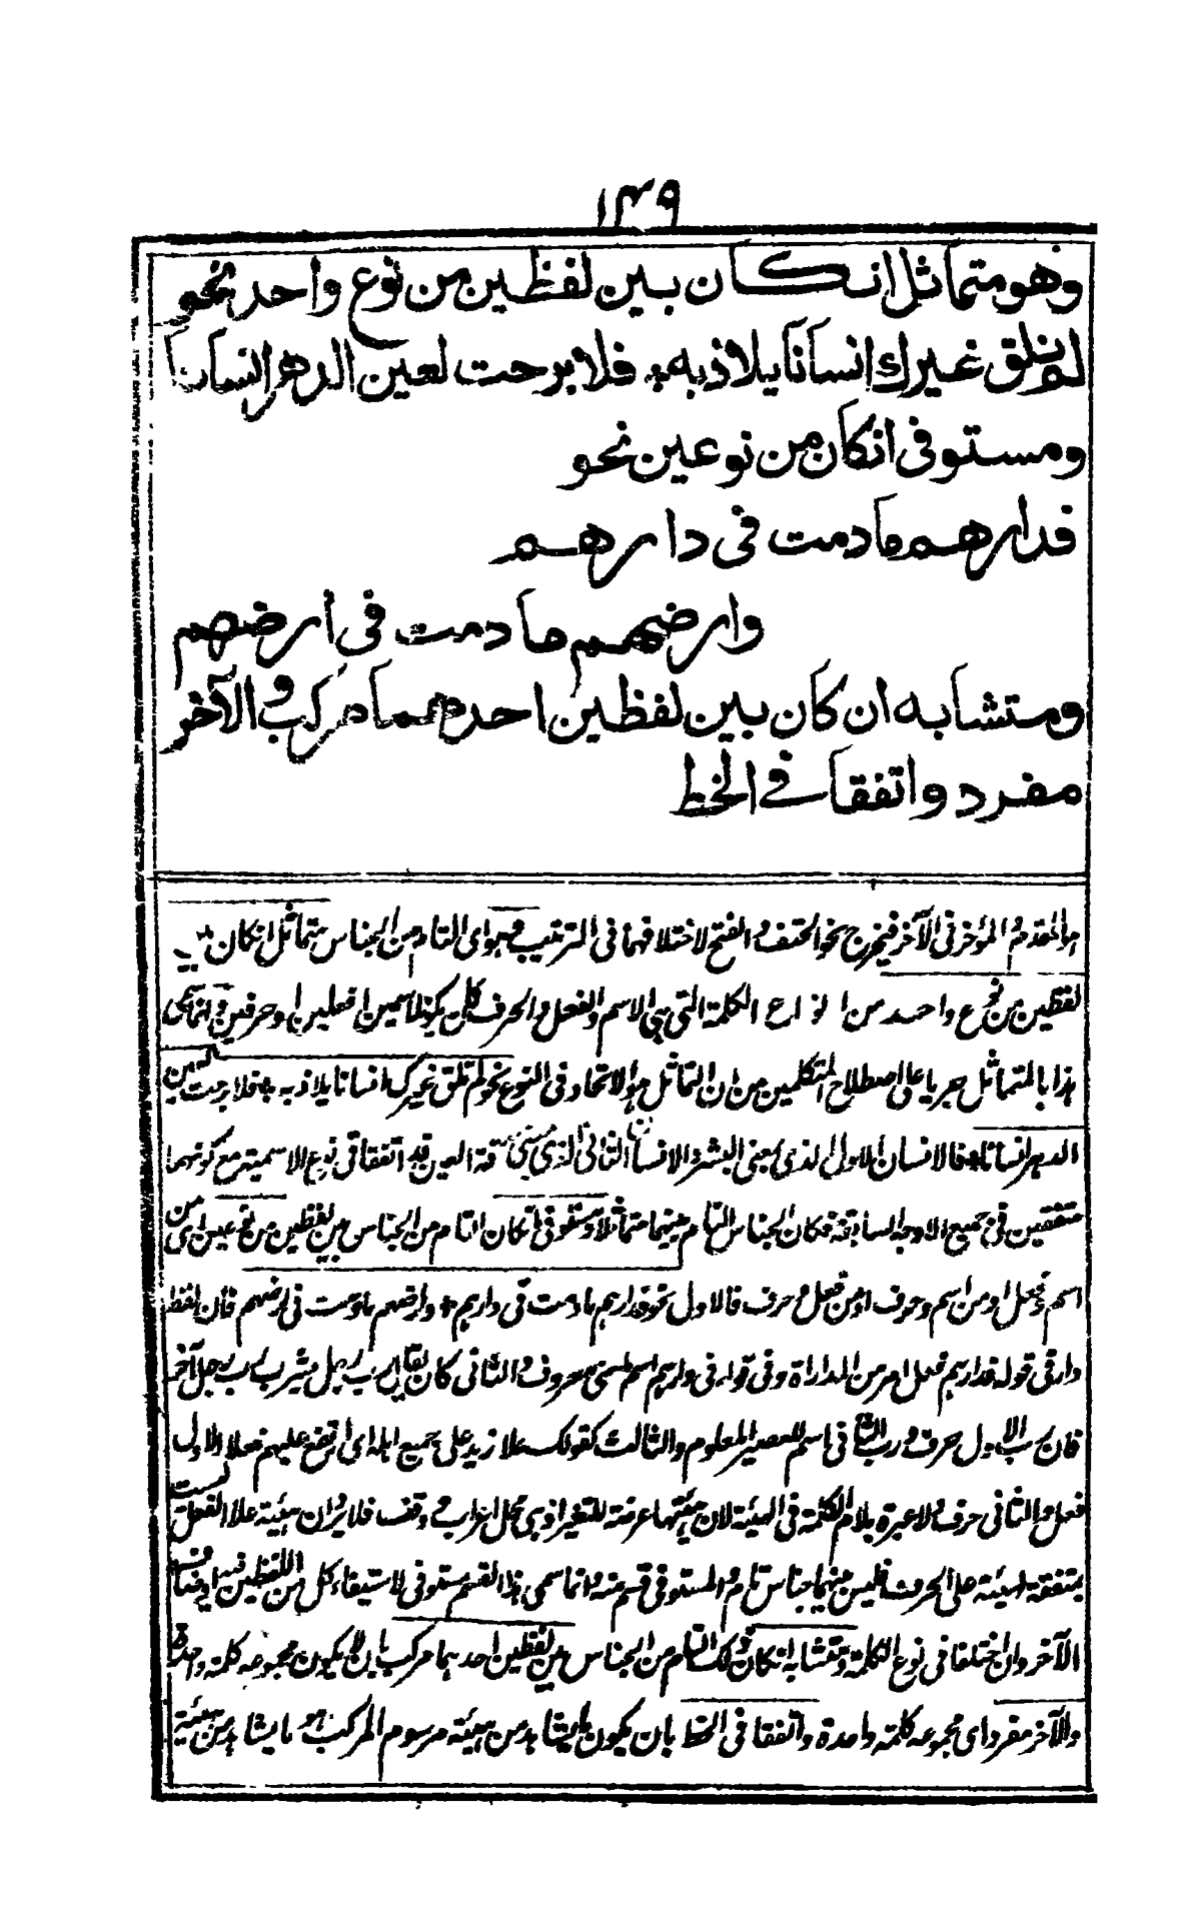 ١٣٩
وهو متماثل ان كان بين لفظين من نوع واحد نحو
لم نلق غيرك انسانا يلاذ به ٭ فلا برحت لعين الدهر انسانا
ومستوفى انكان من نوعين نحو
فدارهم مادمت في دارهم
وارضهم مادمت في ارضهم
ومتشابه ان كان بين لفظين احدهما مركب والآخر
مفرد واتفقا في الخط
المقدم والمؤخر في الآخر فيخرج نحو الحتف والفتح لاختلافهما في الترتيب وهو اى التام من الجناس متماثل انكان بين
لفظين من نوع واحد من انواع الكلمة التي هي الاسم والفعل والحرف كان يكونا اسمين او فعلين او حرفين وانما سمى
هذا بالمتماثل جريا على اصطلاح المتكلمين من ان التماثل هو الاتحاد في النوع نحو لم نلق غيرك انسانا يلاذ به ٭ فلا برحت لعين
الدهر انسانا ٭ فالانسان الاول الذى بمعنى البشر والانسان الثاني الذى بمعنى حدقة العين قد اتفقا في نوع الاسمية مع كونهما
متفقين في جميع الاوجه السابقة فكان الجناس التام بينهما متماثلا ومستوفى ان كان التام من الجناس بين لفظين من نوعين اى من
اسم وفعل او من اسم وحرف او من فعل وحرف فالاول نحو فدارهم مادمت في دارهم ٭ وارضهم مادمت في ارضهم فان لفظ
دار في قوله فدارهم فعل امر من المداراة وفى قوله في دارهم اسم لمسمى معروف والثاني كان يقال رب رجل شرب رب رجل آخر
فان رب الاول حرف ورب الثاني اسم للعصير المعلوم والثالث كقولك علا زيد على جميع اهله اى ارتفع عليهم فعلا الاول
فعل والثاني حرف ولا عبرة بلام الكلمة في الهيئة لان هيئتها عرضة للتغير اذ هي محل اعراب ووقف فلا يرد ان هيئة علا الفعل ليست
متفقة الهيئة على الحرف فليس بينهما جناس تام والمستوفى قسم منه وانما سمى هذا القسم مستوفى لاستيفاء كل من اللفظين اوصاف
الآخر وان اختلفا في نوع الكلمة ومتشابه ان كان ذلك التام من الجناس بين لفظين احدهما مركب بان لا يكون مجموعه كلمة واحدة
والآخر مفرد اى مجموعه كلمة واحدة واتفقا في الخط بان يكون ما يشاهد من هيئة مرسوم المركب هو ما يشاهد من هيئة